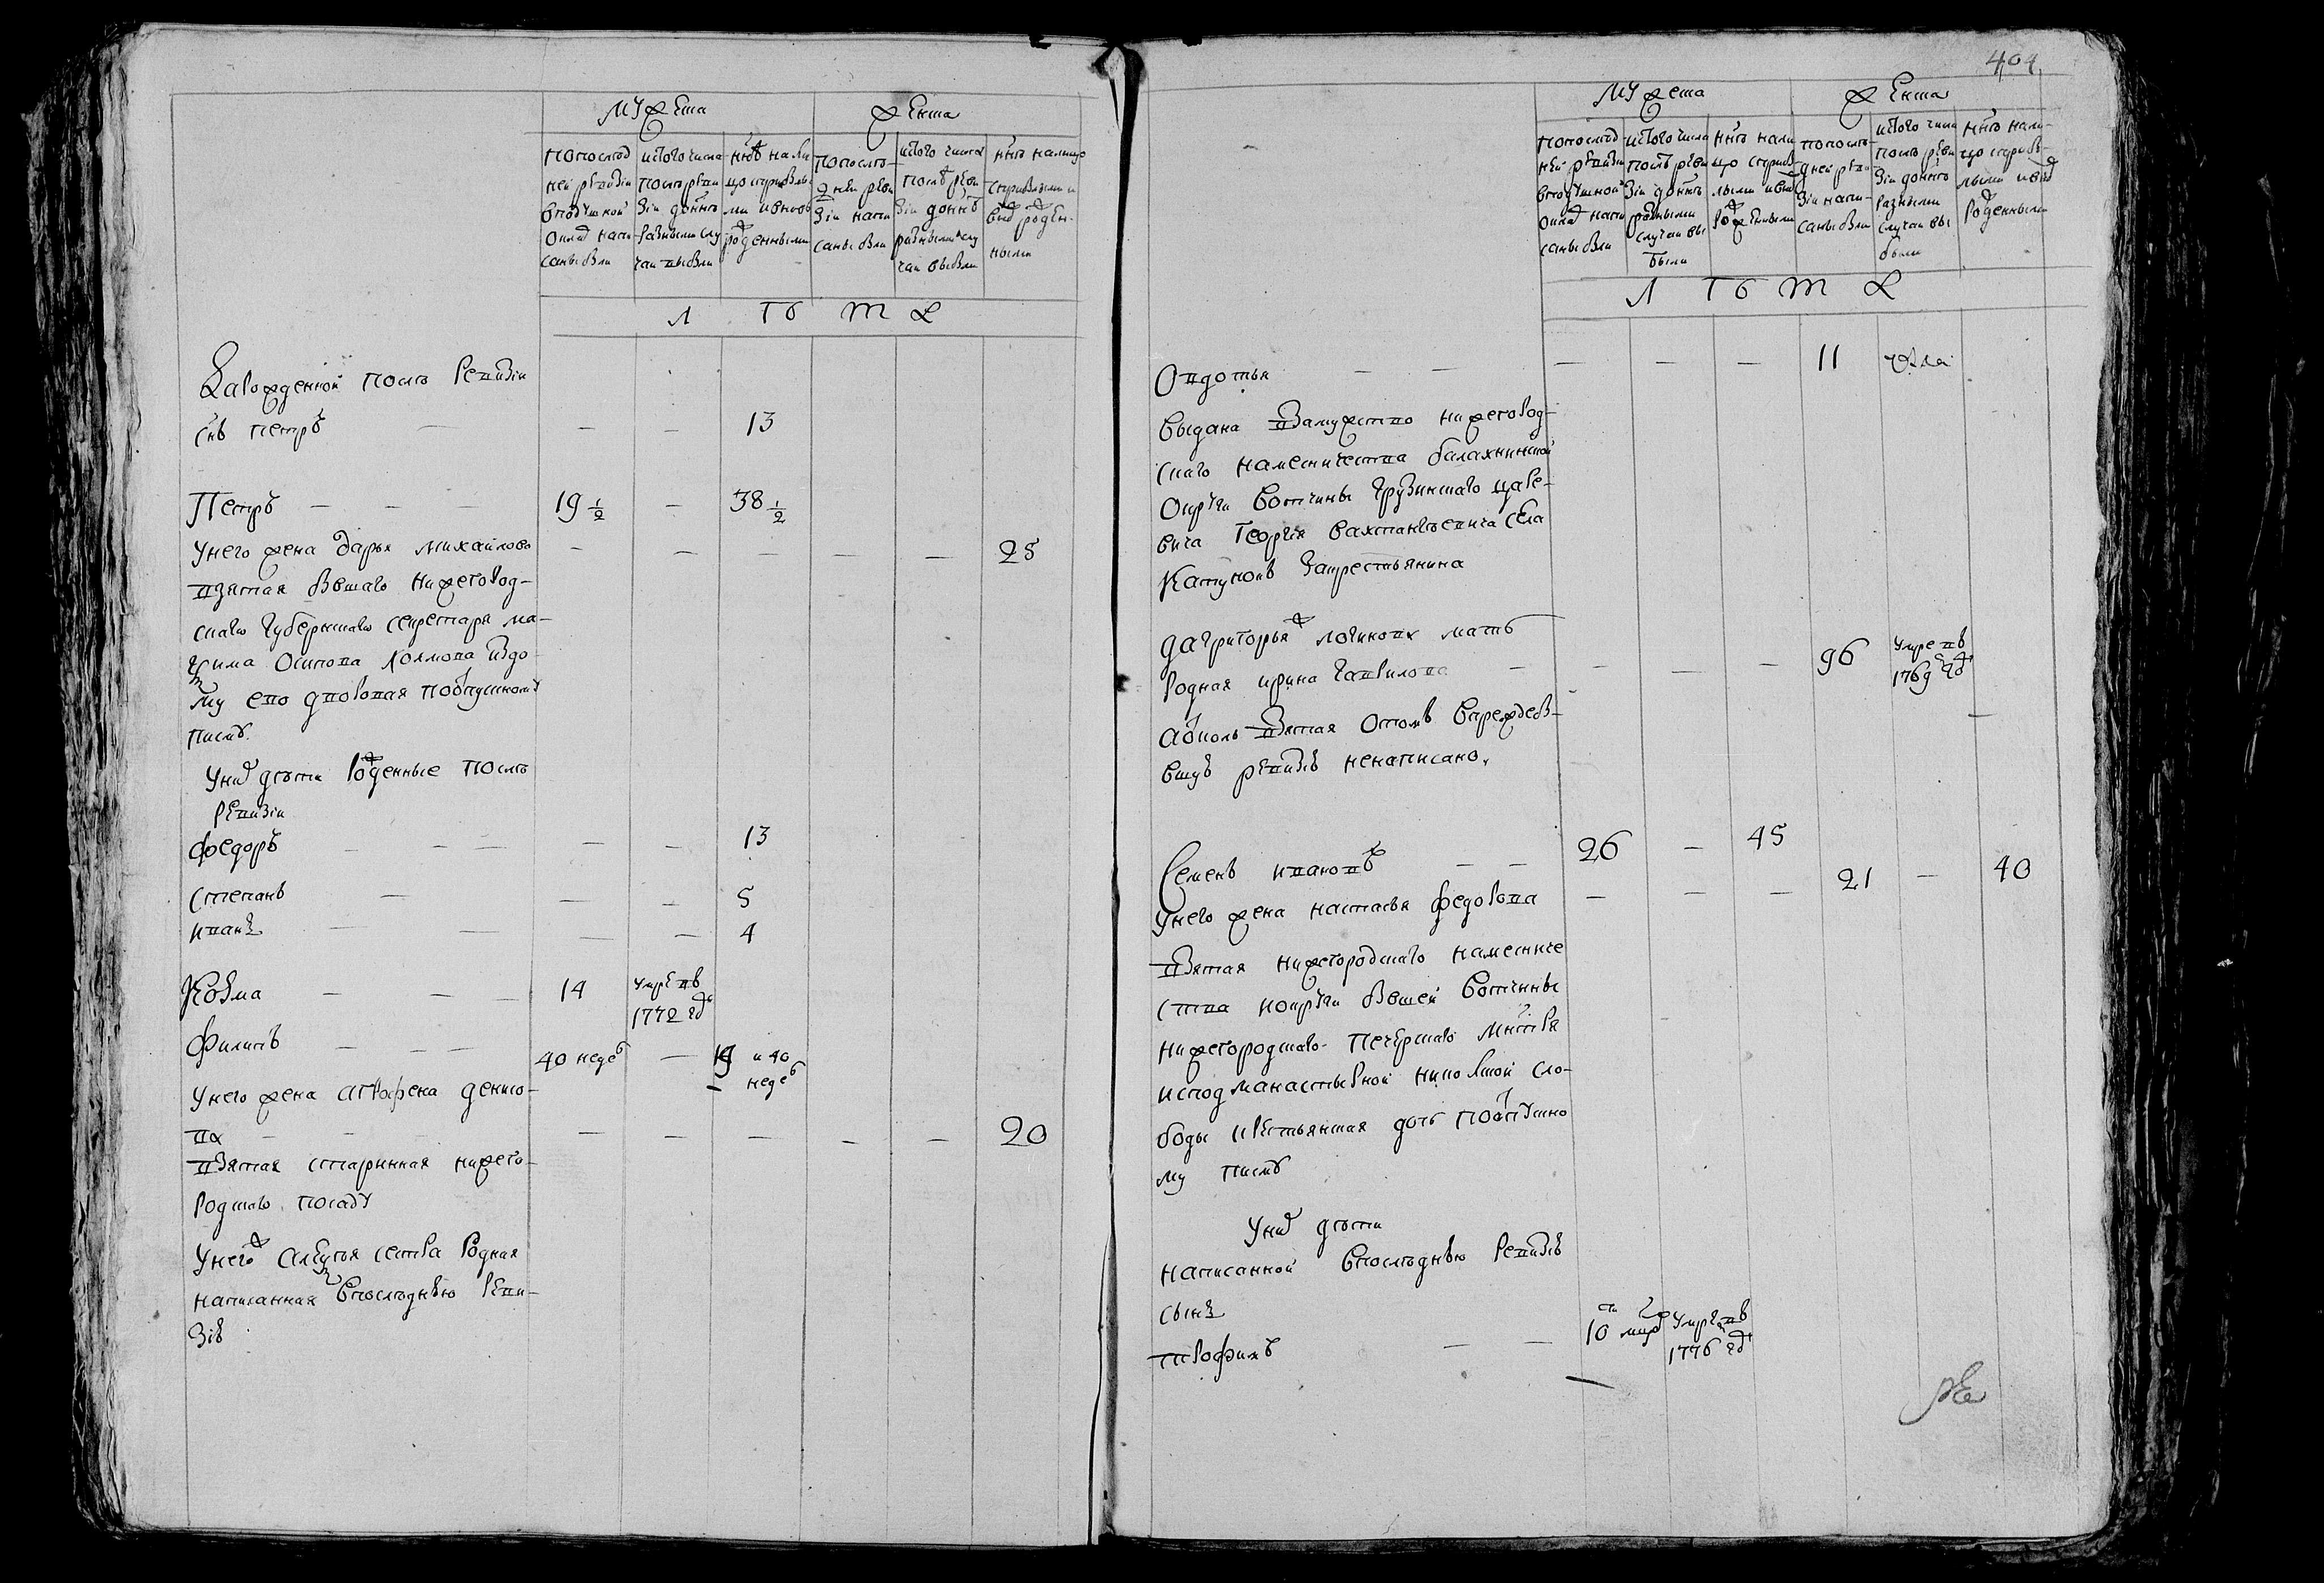 404
Мужеска
Женска
попослед
ней ревизіи
вподушной
оклад напи
саны были
исього числа
после реви
зіи до нне
разными слу
чаи выбыли
нне на ли
цо съприбылы
ми и вновь
рожденными
попосле
дней реви
зіи напи
саны были
исього числа
после реви
зіи до нне
разными слу
чаи выбыли
нне налицо
съприбылыми и
вновь рожден
ными
Л ѣ т а
Зарожденной после ревизіи
снъ петръ — — — 13
Петръ — — — 19 1/2 — 38 1/2
Унего жена дарья михайлова — — — — — 25
взятая бвшаго нижегород-
скаго губернскаго секретаря ма-
ѯима осипова холмова издо
му ево дворовая поотпускному
писмѣ
Уних дѣти рожденные послѣ
ревизіи
Федоръ — — — — — 13
Степанъ — — — 5
иванъ — — — — 4
Козма — — — 14 умре въ
1772 гд
Филипъ — — — 40 недѣ — 19 и 40
недѣ
Унего жена аграфена денисо-
ва — — — — — — — 20
взятая старинная нижего-
родскаго посаду
Унегож сестра родная
написанная впослѣднѣю реви-
зіѣ
Мужеска
Женска
попослед
ней ревизіи
вподушной
оклад напи
саны были
исього числа
послѣ реви
зіи до нне
разными
случаи вы
были
нне нали
цо съприбы
лыми и вновь
рожденными
попослѣ
дней реви
зіи напи-
саны были
исього числа
послѣ реви
зіи до нне
разными
случаи вы
были
нне нали-
цо съприбы-
лыми и вновь
рожденными
Л ѣ т а
Овдотья — — — — — 11
выдана взамужство нижегород-
скаго намесничества балахнинской
округи вотчины грузинскаго царе-
вича Георгія вахтангѣевича села
Катунокъ закрестьянина
дагригорья логинова мать
родная ирина гаврилова — — — — 96 умре въ
1769 гд
откол взятая отомъ впреждеб-
вшуѣ ревизіѣ ненаписано.
Семенъ ивановъ — — 26 — 45
унего жена настасья федорова — — — 21 — 40
взятая нижегородскаго намесниче
ства тоиже округи бвшей вотчины
нижегородскаго печерскаго мнстря
исподманастырной никольской сло-
боды крестьянская дочь поотпускно
му писмѣ
Уних дѣти
написанной впослѣднѣю ревизіѣ
сынъ
трофимъ — 10 умре въ
1776 гд